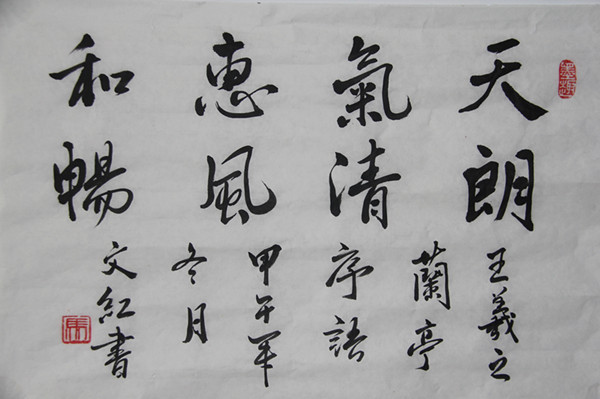 天朗
氣清
惠風
和暢
王羲之
蘭亭
序語
甲午年
冬月
文紅書